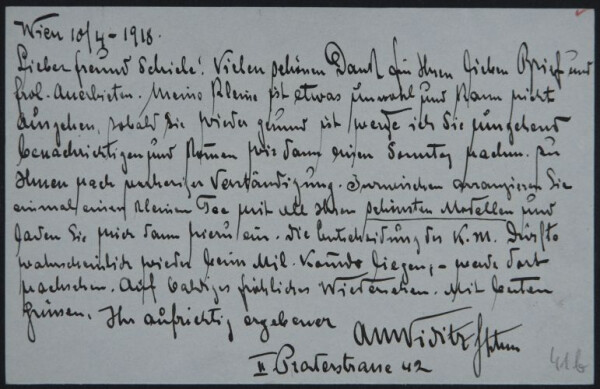 Wien 10/4 - 1918.
Lieber Freund Schiele! Vielen schönen Dank für Ihren lieben Brief und
frdl. Anerbieten. Meine Kleine ist etwas unwohl und kann nicht
ausgehen, sobald sie wieder gesund ist, werde ich Sie umgehend
benachrichtigen und kommen wir dann einen Sonntag nachm. zu
Ihnen nach vorheriger Verständigung. Inzwischen arrangieren Sie
einmal einen kleinen Tee mit all Ihren schönsten Modellen und
laden Sie mich dann hiezu ein. Die Entscheidung des K.M. dürfte
wahrscheinlich wieder beim Mil. Kmdo liegen, - werde dort
nachsehen. Auf baldiges fröhliches Wiedersehen. Mit besten
Grüssen, Ihr aufrichtig ergebener
II Praterstrasse 42
416